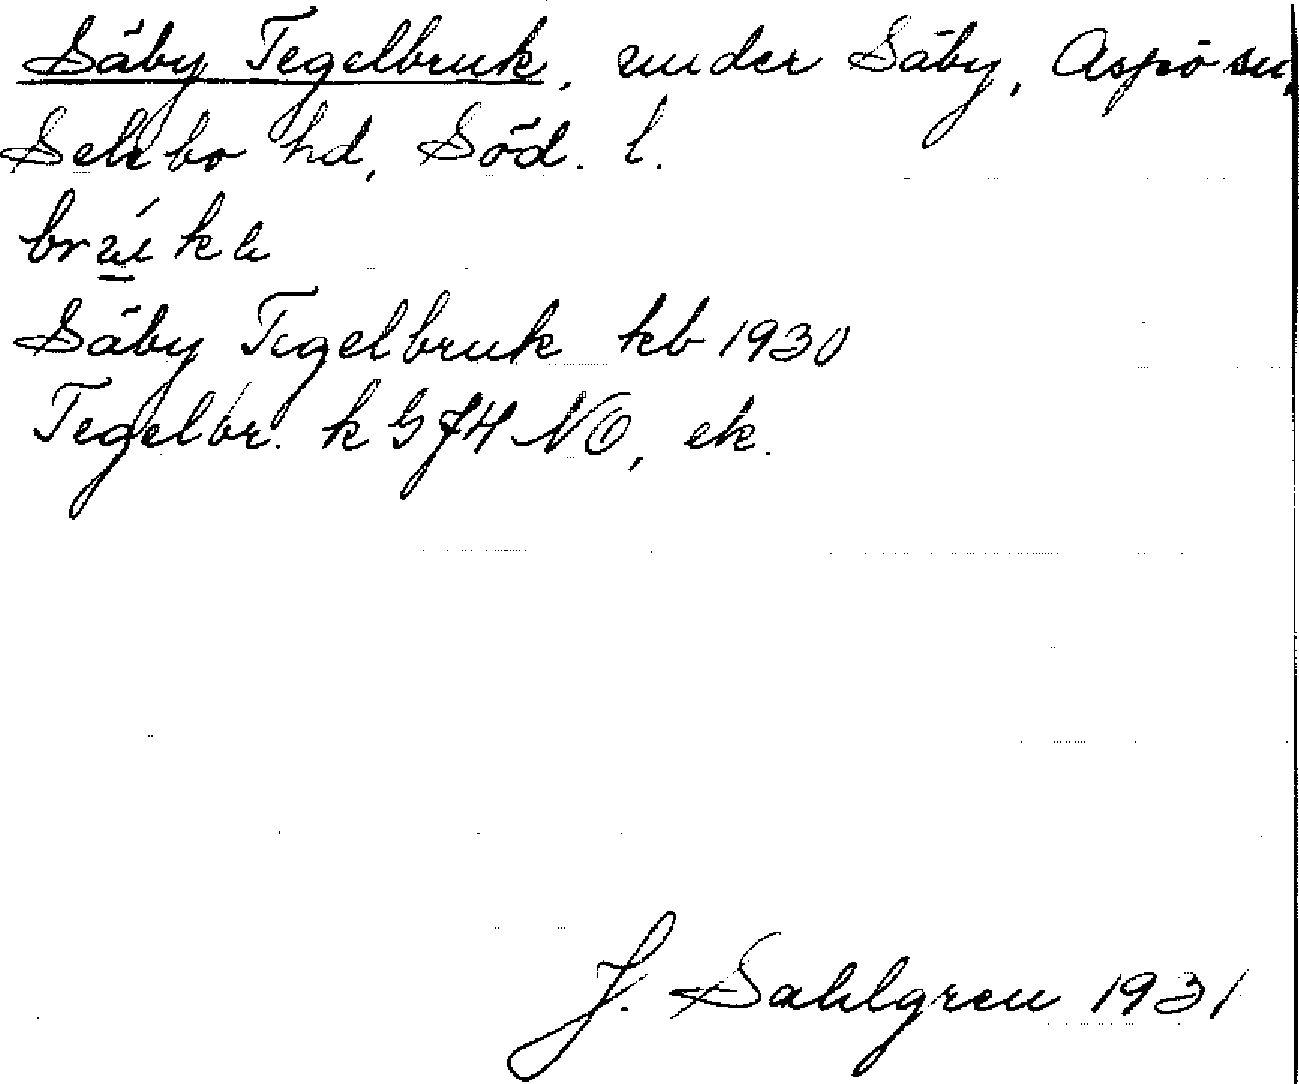 Säby Tegelbruk, under Säby, Aspö sn,
Selebo hd, Söd. l.
Säby Tegelbruk kb 1930
Tegelbr. k G74 NO, ek.
J. Sahlgren 1931